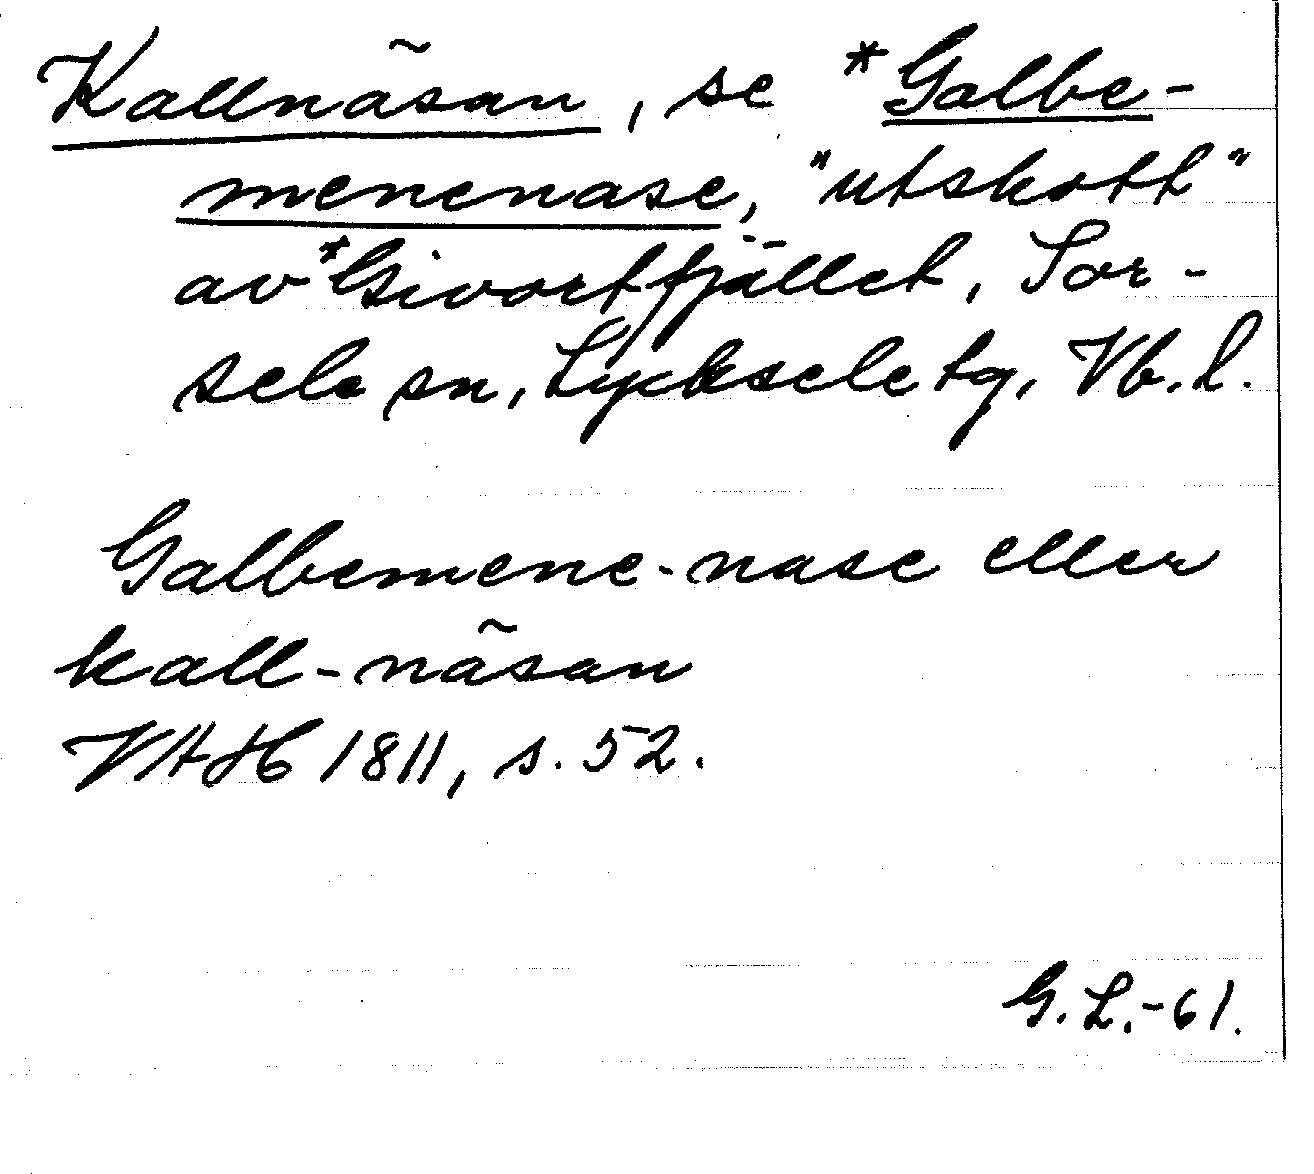 Kallnäsan, se *Galbe-
menenase, "utskott"
av *Givortfjället, Sor-
sele sn, Lycksele tg, Vb. l.
Galbemene-nase eller
kall-näsan
VAH 1811, s. 52.
G. L. -61.